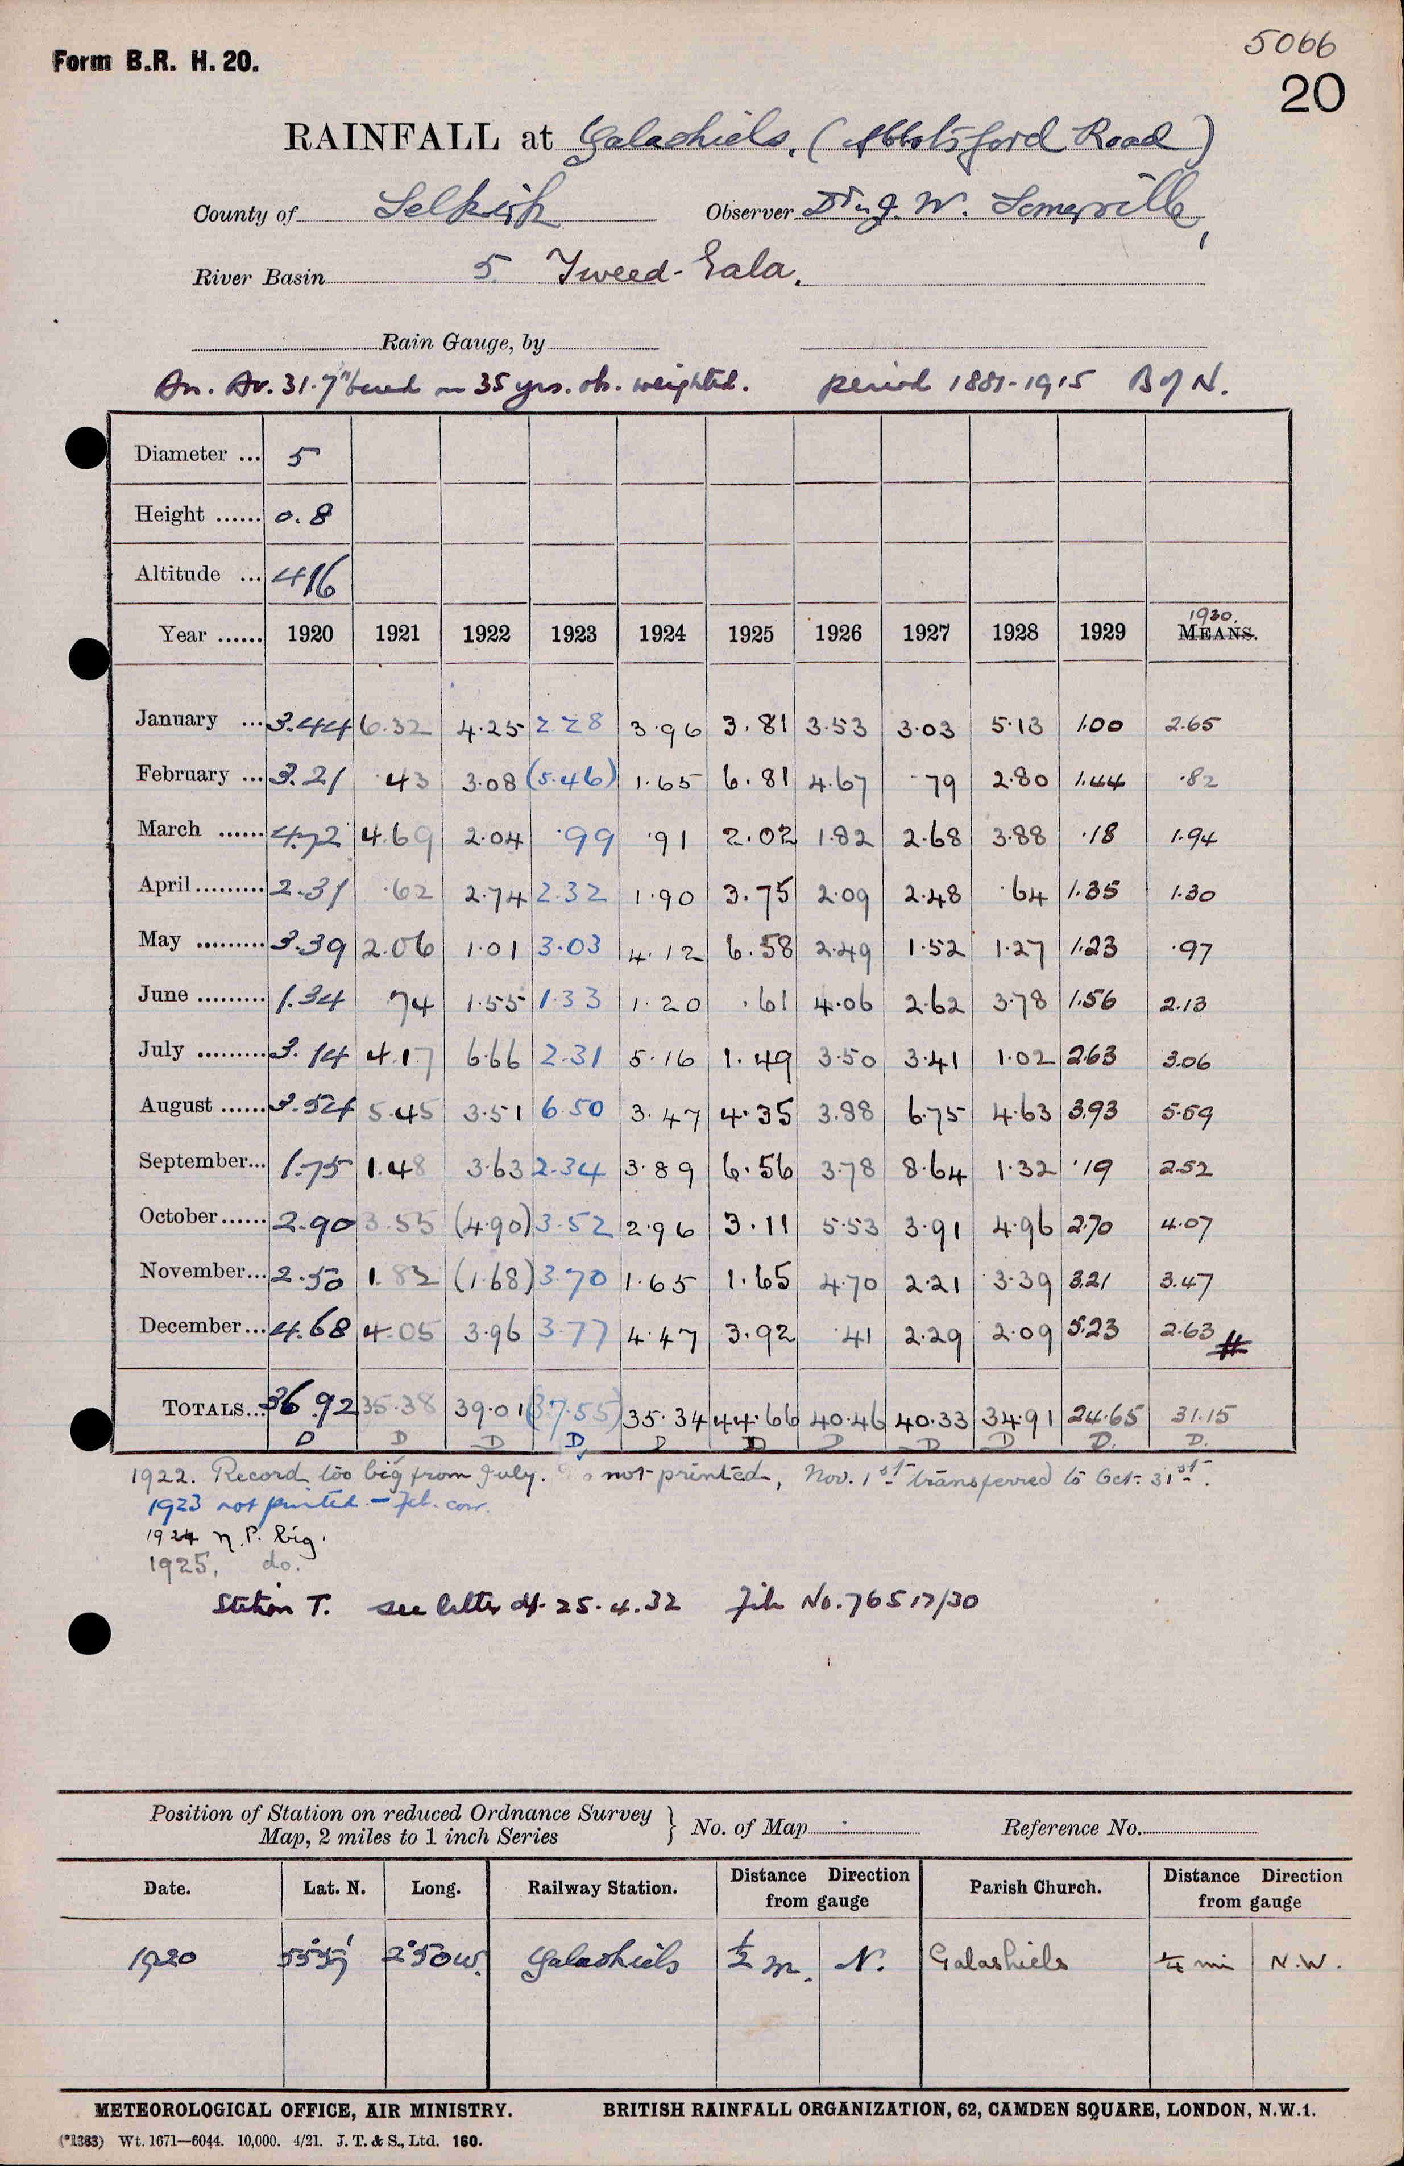 5066
Form B.R. H. 20.
20
RAINFALL at Galashiels, (Abbotsford Road)
County of Selkirk Observer Dr. J. W. Somerville,
River Basin 5. Tweed-Gala.
Rain Gauge, by
An. Av. 31.7" based on 35 yrs. ob. weighted. period 1881-1915 B of N.
Diameter ... 5
Height ...... 0.8
Altitude ... 416
1930.
Year ...... 1920 1921 1922 1923 1924 1925 1926 1927 1928 1929 MEANS.
January ... 3.44 6.32 4.25 2.28 3.96 3.81 3.53 3.03 5.13 1.00 2.65
February ... 3.21 .43 3.08 (5.46) 1.65 6.81 4.67 .79 2.80 1.44 .82
March ...... 4.72 4.69 2.04 .99 .91 2.02 1.82 2.68 3.88 .18 1.94
April ......... 2.31 .62 2.74 2.32 1.90 3.75 2.09 2.48 .64 1.35 1.30
May ......... 3.39 2.06 1.01 3.03 4.12 6.58 2.49 1.52 1.27 1.23 .97
June ......... 1.34 .74 1.55 1.33 1.20 .61 4.06 2.62 3.78 1.56 2.13
July ......... 3.14 4.17 6.66 2.31 5.16 1.49 3.50 3.41 1.02 2.63 3.06
August ...... 3.54 5.45 3.51 6.50 3.47 4.35 3.88 6.75 4.63 3.93 5.59
September... 1.75 1.48 3.63 2.34 3.89 6.56 3.78 8.64 1.32 .19 2.52
October...... 2.90 3.55 (4.90) 3.52 2.96 3.11 5.53 3.91 4.96 2.70 4.07
November... 2.50 1.82 (1.68) 3.70 1.65 1.65 4.70 2.21 3.39 3.21 3.47
December... 4.68 4.05 3.96 3.77 4.47 3.92 .41 2.29 2.09 5.23 2.63 #
TOTALS... 36.92 35.38 39.01 (37.55) 35.34 44.66 40.46 40.33 34.91 24.65 31.15
D D D D D D D D D D. D.
1922. Record too big from July. not printed, Nov. 1st transferred to Oct. 31st.
1923 not printed - Feb. corr.
1924 N.P. big.
1925, do.
Station T. see letter of 25.4.32 File No. 76517/30
Position of Station on reduced Ordnance Survey
Map, 2 miles to 1 inch Series } No. of Map Reference No.
Date. Lat. N. Long. Railway Station. Distance Direction from gauge Parish Church. Distance Direction from gauge
1920 55°37' 2°50W. Galashiels ½ m. N. Galashiels ¼ mi N.W.
METEOROLOGICAL OFFICE, AIR MINISTRY. BRITISH RAINFALL ORGANIZATION, 62, CAMDEN SQUARE, LONDON, N.W.1.
(*1383) Wt. 1671—6044. 10,000. 4/21. J. T. & S., Ltd. 160.